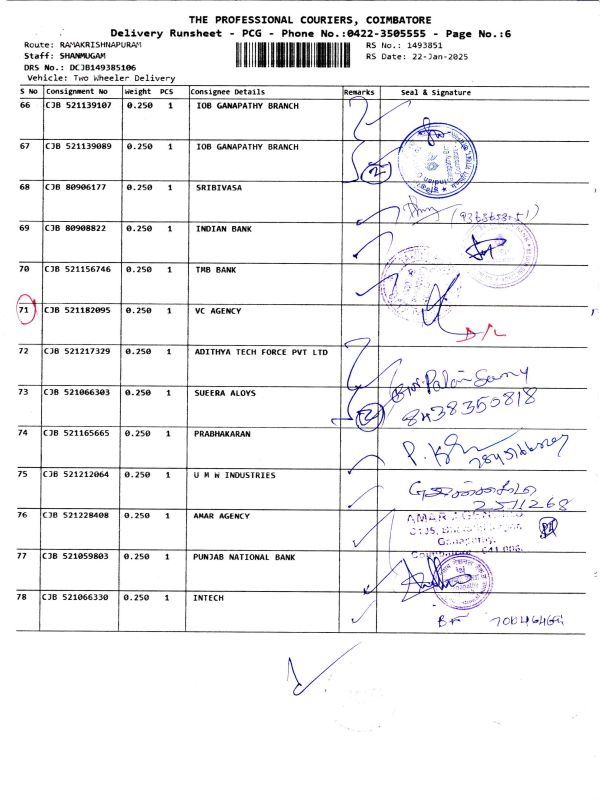 THE PROFESSIONAL COURIERS, COIMBATORE
Delivery Runsheet - PCG - Phone No.:0422-3505555 - Page No.:6
Route: RAMAKRISHNAPURAM RS No.: 1493851
Staff: SHANMUGAM RS Date: 22-Jan-2025
DRS No.: DCJB149385106
Vehicle: Two Wheeler Delivery
S No Consignment No Weight PCS Consignee Details Remarks Seal & Signature
66 CJB 521139107 0.250 1 IOB GANAPATHY BRANCH
67 CJB 521139089 0.250 1 IOB GANAPATHY BRANCH
2
68 CJB 80906177 0.250 1 SRIBIVASA
69 CJB 80908822 0.250 1 INDIAN BANK
70 CJB 521156746 0.250 1 TMB BANK
71 CJB 521182095 0.250 1 VC AGENCY
D/L
72 CJB 521217329 0.250 1 ADITHYA TECH FORCE PVT LTD
73 CJB 521066303 0.250 1 SUEERA ALOYS
2
8438350818
74 CJB 521165665 0.250 1 PRABHAKARAN
75 CJB 521212064 0.250 1 U M W INDUSTRIES
2511268
76 CJB 521228408 0.250 1 AMAR AGENCY
77 CJB 521059803 0.250 1 PUNJAB NATIONAL BANK
78 CJB 521066330 0.250 1 INTECH